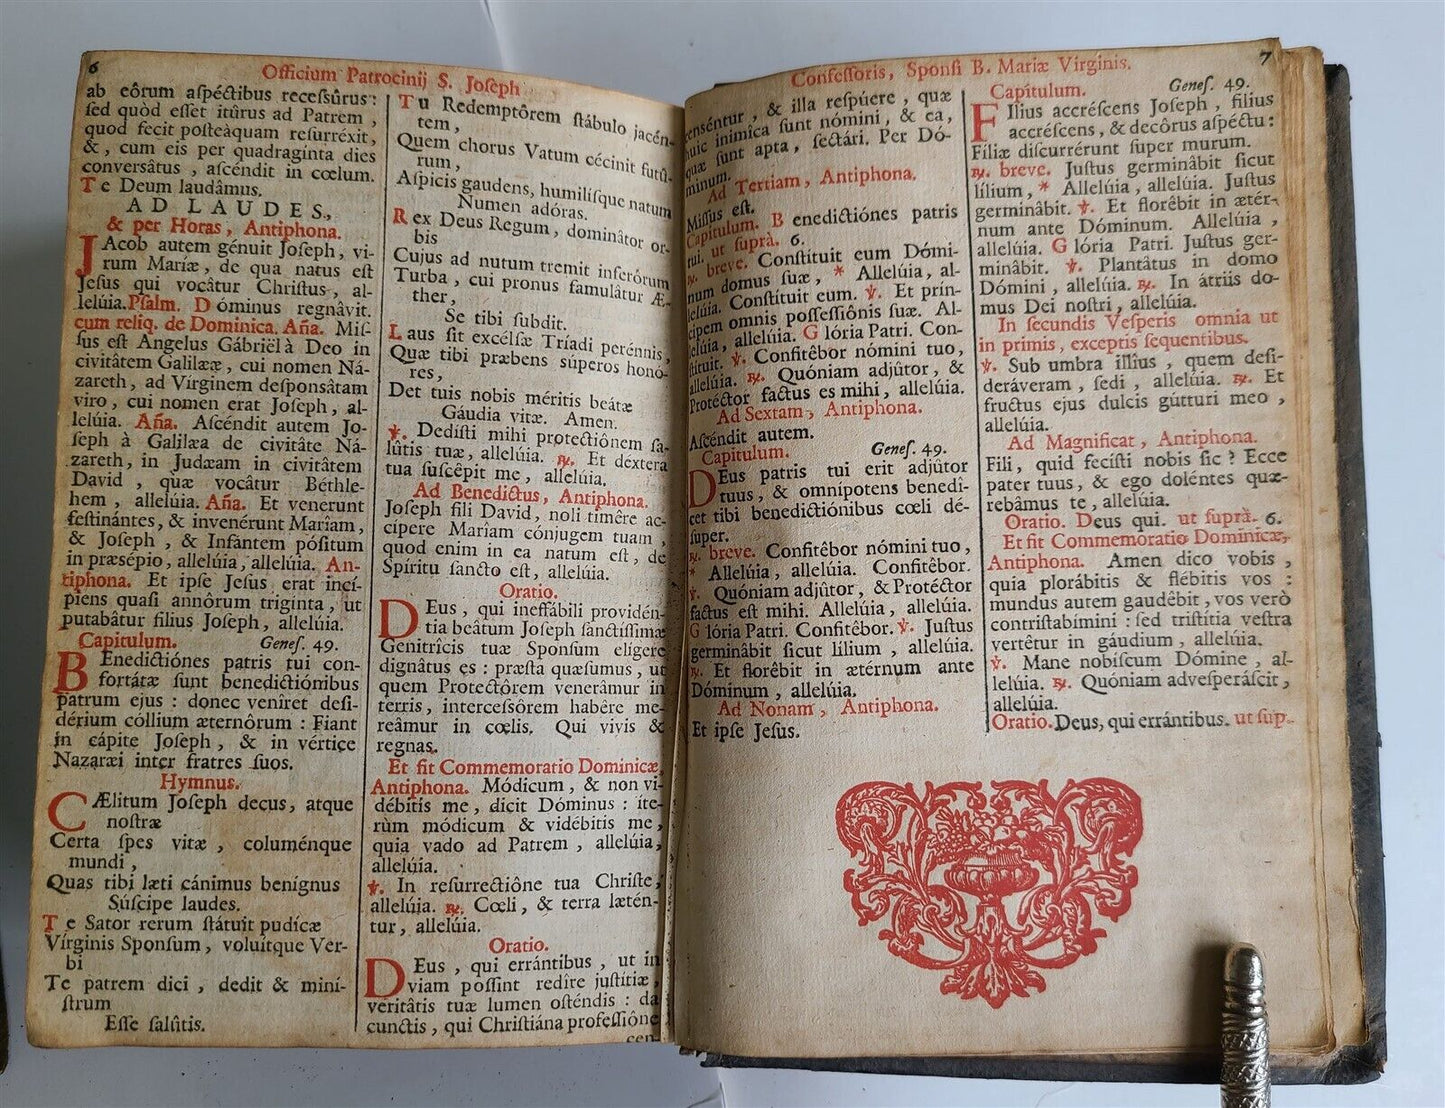 6
Officium Patrocinij S. Joſeph
ab eôrum aſpéctibus receſsûrus :
ſed quòd eſſet itûrus ad Patrem ,
quod fecit poſteàquam reſurréxit,
& , cum eis per quadraginta dies
converſâtus , aſcéndit in cœlum.
Te Deum laudâmus.
AD LAUDES,
& per Horas, Antiphona.
JAcob autem génuit Joſeph, vi-
rum Mariæ, de qua natus eſt
Jeſus qui vocâtur Chriſtus, al-
lelúia. Pſalm. Dóminus regnâvit.
cum reliq. de Dominica. Aña. Miſ-
ſus eſt Angelus Gábriël à Deo in
civitâtem Galilææ , cui nomen Ná-
zareth, ad Vírginem deſponsâtam
viro , cui nomen erat Joſeph, al-
lelúia. Aña. Aſcéndit autem Jo-
ſeph à Galilæa de civitâte Ná-
zareth, in Judæam in civitâtem
David , quæ vocâtur Béthle-
hem , allelúia. Aña. Et venerunt
feſtinántes, & invenérunt Marîam,
& Joſeph , & Infántem póſitum
in præsépio, allelúia, allelúia. An-
tiphona. Et ipſe Jeſus erat incí-
piens quaſi annôrum triginta , ut
putabâtur filius Joſeph, allelúia.
Capitulum. Geneſ. 49.
BEnedictiónes patris tui con-
fortátæ ſunt benedictiónibus
patrum ejus : donec veniret deſi-
dérium cóllium æternôrum : Fiant
in cápite Joſeph , & in vértice
Nazaræi inter fratres ſuos.
Hymnus.
CÆlitum Joſeph decus, atque
noſtræ
Certa ſpes vitæ , columénque
mundi ,
Quas tibi læti cánimus benígnus
Súſcipe laudes.
Te Sator rerum ſtátuit pudícæ
Vírginis Sponſum, voluítque Ver-
bi
Te patrem dici , dedit & mini-
ſtrum
Eſſe ſalûtis.
Tu Redemptôrem ſtábulo jacén-
tem ,
Quem chorus Vatum cécinit futû-
rum ,
Aſpicis gaudens, humilíſque natum
Numen adóras.
Rex Deus Regum , dominâtor or-
bis
Cujus ad nutum tremit inferôrum
Turba , cui pronus famulâtur Æ-
ther ,
Se tibi ſubdit.
Laus ſit excélſæ Tríadi perénnis,
Quæ tibi præbens súperos honó-
res ,
Det tuis nobis méritis beátæ
Gáudia vitæ. Amen.
℣. Dedíſti mihi protectiônem ſa-
lûtis tuæ, allelúia. ℟. Et déxtera
tua ſuſcêpit me , allelúia.
Ad Benedictus, Antiphona.
Joſeph fili David, noli timêre ac-
cípere Marîam cónjugem tuam ,
quod enim in ea natum eſt , de
Spíritu ſancto eſt, allelúia.
Oratio.
DEus , qui ineffábili providén-
tia beâtum Joſeph ſanctíſſimæ
Genitrîcis tuæ Sponſum elígere
dignâtus es : præſta quæſumus , ut
quem Protectôrem venerâmur in
terris, interceſſôrem habêre me-
reâmur in cœlis. Qui vivis &
regnas.
Et fit Commemoratio Dominicæ,
Antiphona. Módicum , & non vi-
débitis me , dicit Dóminus : íte-
rùm módicum & vidébitis me ,
quia vado ad Patrem , allelúia,
allelúia.
℣. In reſurrectiône tua Chriſte,
allelúia. ℟. Cœli , & terra lætén-
tur , allelúia.
Oratio.
DEus , qui errántibus , ut in
viam poſſint redîre juſtítiæ ,
veritâtis tuæ lumen oſténdis : da
cunctis , qui Chriſtiána profeſſiône
cen-
7
Confeſſoris, Sponſi B. Mariæ Virginis.
censéntur , & illa reſpúere , quæ
huic inimíca ſunt nómini , & ea,
quæ ſunt apta , ſectári. Per Dó-
minum.
Ad Tertiam, Antiphona.
Miſſus eſt.
Capitulum. Benedictiónes patris
tui. ut ſuprà. 6.
℟. breve. Conſtítuit eum Dómi-
num domus ſuæ , * Allelúia, al-
lelúia. Conſtítuit eum. ℣. Et prín-
cipem omnis poſſeſſiônis ſuæ. Al-
lelúia , allelúia. Glória Patri. Con-
ſtítuit. ℣. Confitêbor nómini tuo,
allelúia. ℟. Quóniam adjûtor, &
Protéctor factus es mihi, allelúia.
Ad Sextam, Antiphona.
Aſcéndit autem.
Capitulum. Geneſ. 49.
DEus patris tui erit adjútor
tuus , & omnípotens benedí-
cet tibi benedictiónibus cœli dé-
ſuper.
℟. breve. Confitêbor nómini tuo,
* Allelúia, allelúia. Confitêbor.
℣. Quóniam adjûtor, & Protéctor
factus eſt mihi. Allelúia, allelúia.
Glória Patri. Confitêbor. ℣. Juſtus
germinâbit ſicut lílium , allelúia.
℟. Et florêbit in ætérnum ante
Dóminum , allelúia.
Ad Nonam , Antiphona.
Et ipſe Jeſus.
Capitulum. Geneſ. 49.
FIlius accréſcens Joſeph , filius
accréſcens , & decôrus aſpéctu :
Fíliæ diſcurrérunt ſuper murum.
℟. breve. Juſtus germinâbit ſicut
lílium , * Allelúia, allelúia. Juſtus
germinâbit. ℣. Et florêbit in ætér-
num ante Dóminum. Allelúia ,
allelúia. Glória Patri. Juſtus ger-
minâbit. ℣. Plantâtus in domo
Dómini , allelúia. ℟. In átriis do-
mus Dei noſtri , allelúia.
In ſecundis Veſperis omnia ut
in primis, exceptis ſequentibus.
℣. Sub umbra illîus , quem deſi-
deráveram , ſedi , allelúia. ℟. Et
fructus ejus dulcis gútturi meo ,
allelúia.
Ad Magnificat, Antiphona.
Fili, quid fecíſti nobis ſic ? Ecce
pater tuus , & ego doléntes quæ-
rebâmus te , allelúia.
Oratio. Deus qui. ut ſuprà. 6.
Et fit Commemoratio Dominicæ,
Antiphona. Amen dico vobis ,
quia plorábitis & flébitis vos :
mundus autem gaudêbit , vos verò
contriſtabímini : ſed triſtítia veſtra
vertêtur in gáudium , allelúia.
℣. Mane nobíſcum Dómine , al-
lelúia. ℟. Quóniam adveſperáſcit ,
allelúia.
Oratio. Deus, qui errántibus. ut ſup.